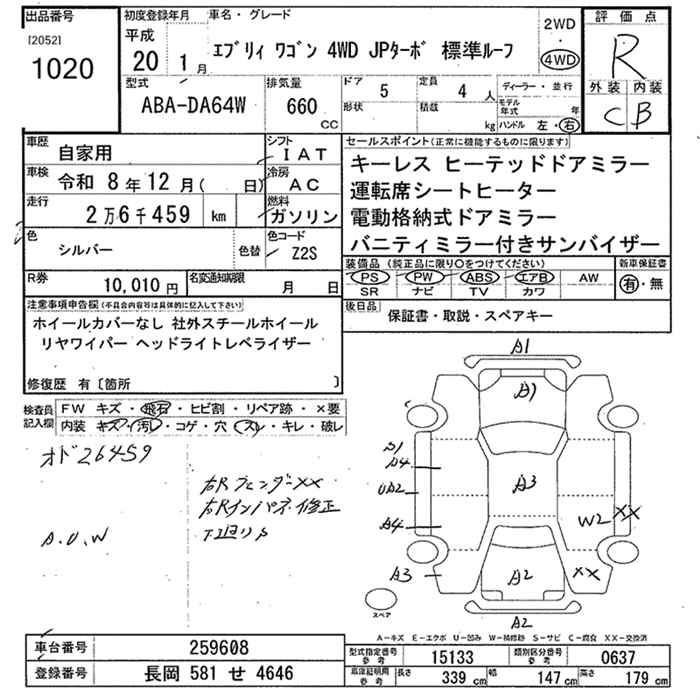 出品番号
[2052]
1020
初度登録年月
平成
20 1月
車名・グレード
エブリィ ワゴン 4WD JPターボ 標準ルーフ
2WD
4WD
評価点
R
外装 内装
C B
型式
ABA-DA64W
排気量
660
cc
ドア
5
定員
4人
形状
積載
kg
ディーラー・並行
モデル年式 年
ハンドル 左・右
車歴
自家用
シフト
IAT
車検
令和 8年12月( 日)
冷房
AC
走行
2万6千459 km
燃料
ガソリン
色
シルバー
色替
色コード
Z2S
R券
10,010円
名変通知期限
月 日
セールスポイント(正常に機能するものに限ります)
キーレス ヒーテッドドアミラー
運転席シートヒーター
電動格納式ドアミラー
バニティミラー付きサンバイザー
装備品(純正品に限り○をつけてください)
PS PW ABS エアB AW
SR ナビ TV カワ
新車保証書
有・無
後日品
保証書・取説・スペアキー
注意事項申告欄(不具合内容等は具体的に記入して下さい)
ホイールカバーなし 社外スチールホイール
リヤワイパー ヘッドライトレベライザー
修復歴 有〔箇所 〕
検査員記入欄
FW キズ・飛石・ヒビ割・リペア跡・×要
内装 キズ・汚レ・コゲ・穴・スレ・キレ・破レ
オド26459
A.U.W
右Rフェンダー××
右Rインパネ修正
A1
A1
A3
A2
A2
A4
UA2
A4
A3
W2
××
××
スペア
A−キズ E−エクボ U−凹み W−補修跡 S−サビ C−腐食 XX−交換済
車台番号
259608
登録番号
長岡 581 せ 4646
型式指定番号
参考
15133
類別区分番号
参考
0637
車庫証明用
参考
長さ
339 cm
幅
147 cm
高さ
179 cm